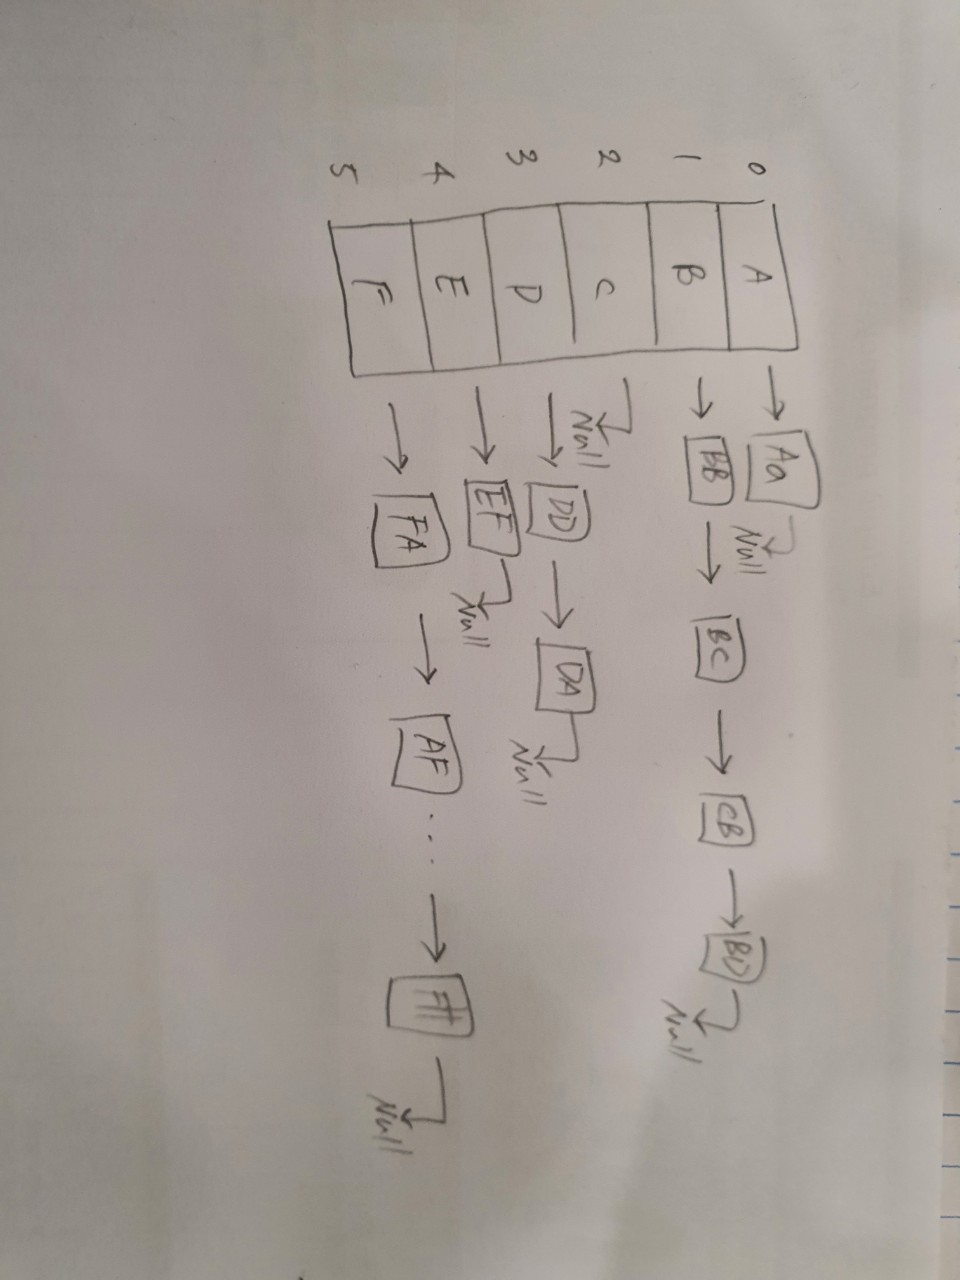 0 A Aa Null
1 B BB BC CB BD Null
2 C Null
3 D DD DA Null
4 E EF Null
5 F FA AF ... Null